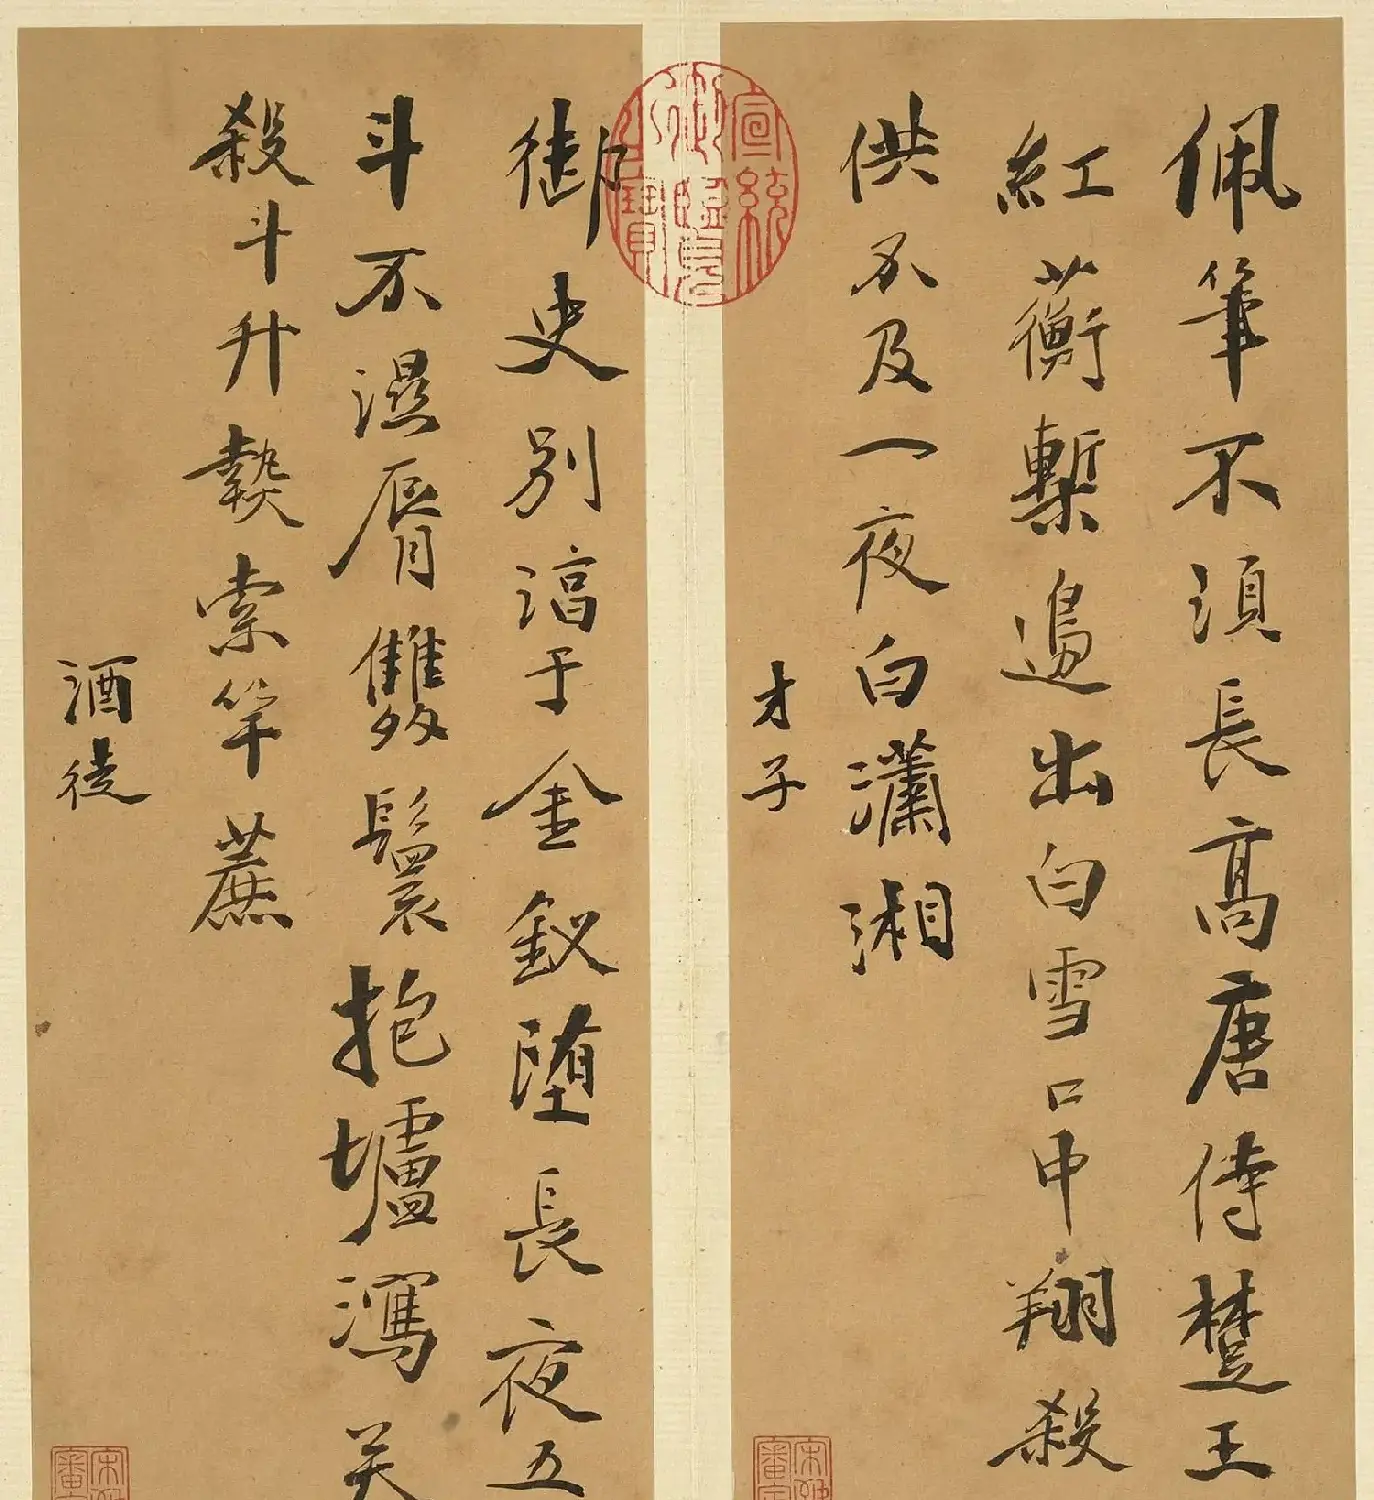 佩筆不須長高唐侍楚王
紅蘅槧邊出白雪口中翔殺
供不及一夜白瀟湘
才子
御史別淳于金釵墮長夜五
斗不濕脣雙鬟抱壚瀉笑
殺斗升
索竿蔗
酒徒
宣統御覽之寶